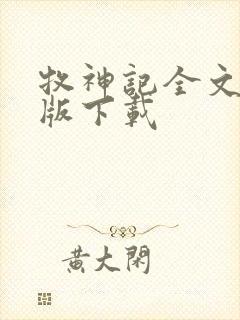 牧神記全文
版下載
黃大閑